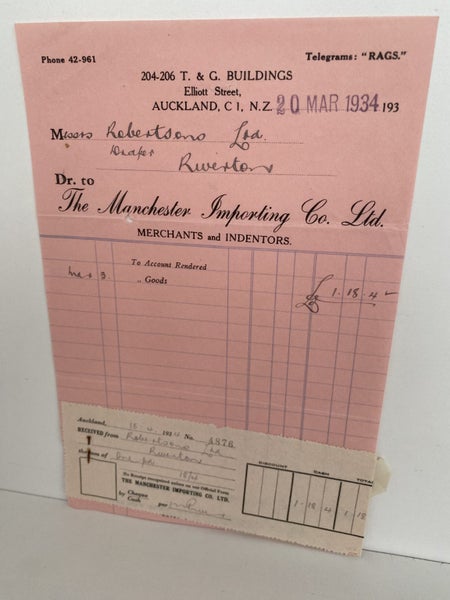 Phone 42-961
Telegrams: "RAGS."
204-206 T. & G. BUILDINGS
Elliott Street,
AUCKLAND, C 1, N.Z. 20 MAR 1934 193
Messrs Robertsons Ltd.
Draper
Riverton
Dr. to
The Manchester Importing Co. Ltd.
MERCHANTS and INDENTORS.
To Account Rendered
Mar 3. „ Goods £ 1. 18. 4
Auckland, 16. 4. 1934 No. 4876
RECEIVED from Robertsons Ltd
Riverton
the sum of One pd
18/4
No Receipt recognised unless on our Official Form
THE MANCHESTER IMPORTING CO. LTD.
by Cheque
Cash
per
DISCOUNT CASH TOTAL
1 18 4 1 18